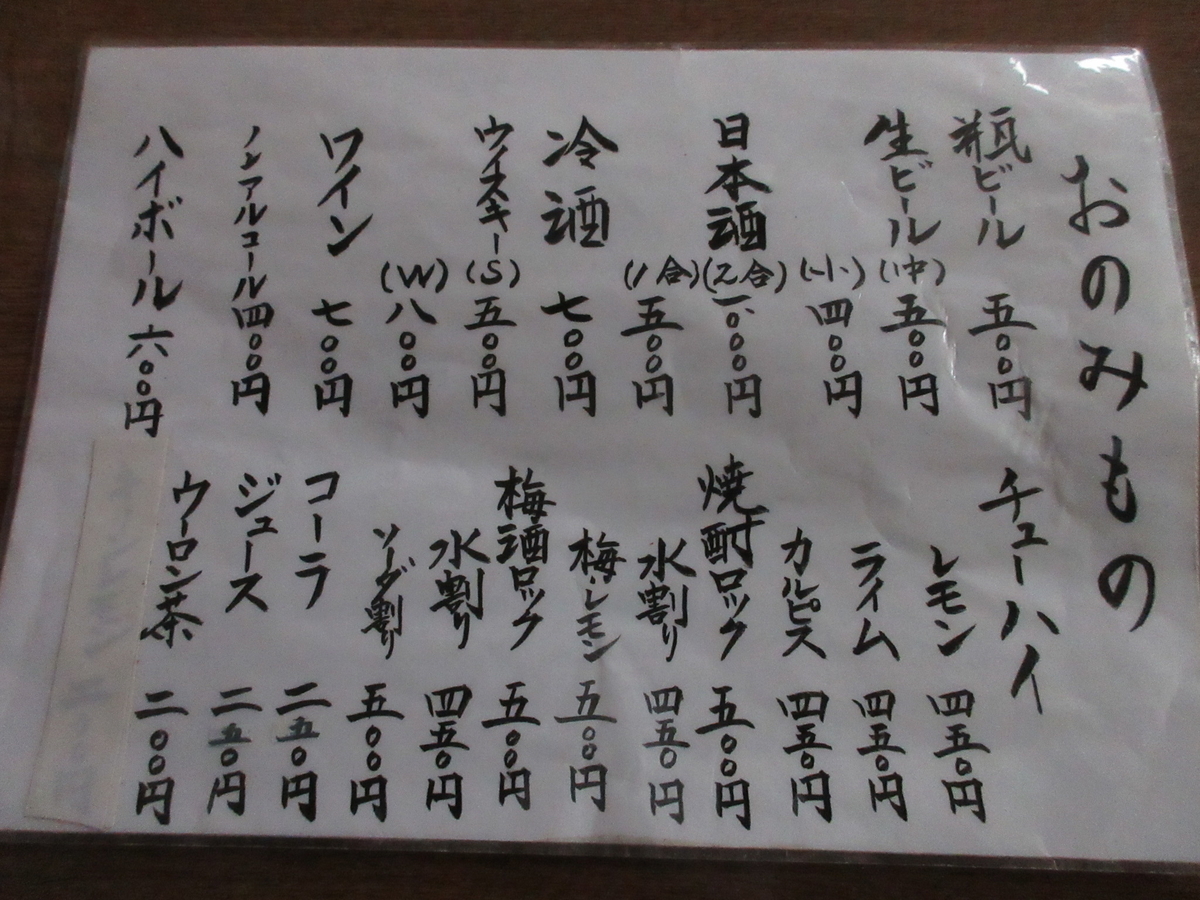 おのみもの
瓶ビール 五〇〇円
生ビール (中) 五〇〇円
(小) 四〇〇円
日本酒 (2合) 一、〇〇〇円
(1合) 五〇〇円
冷酒 七〇〇円
ウイスキー (S) 五〇〇円
(W) 八〇〇円
ワイン 七〇〇円
ノンアルコール 四〇〇円
ハイボール 六〇〇円
チューハイ
レモン 四五〇円
ライム 四五〇円
カルピス 四五〇円
焼酎ロック 五〇〇円
水割り 四五〇円
梅・レモン 五〇〇円
梅酒ロック 五〇〇円
水割り 四五〇円
ソーダ割り 五〇〇円
コーラ 二五〇円
ジュース 二五〇円
ウーロン茶 二〇〇円